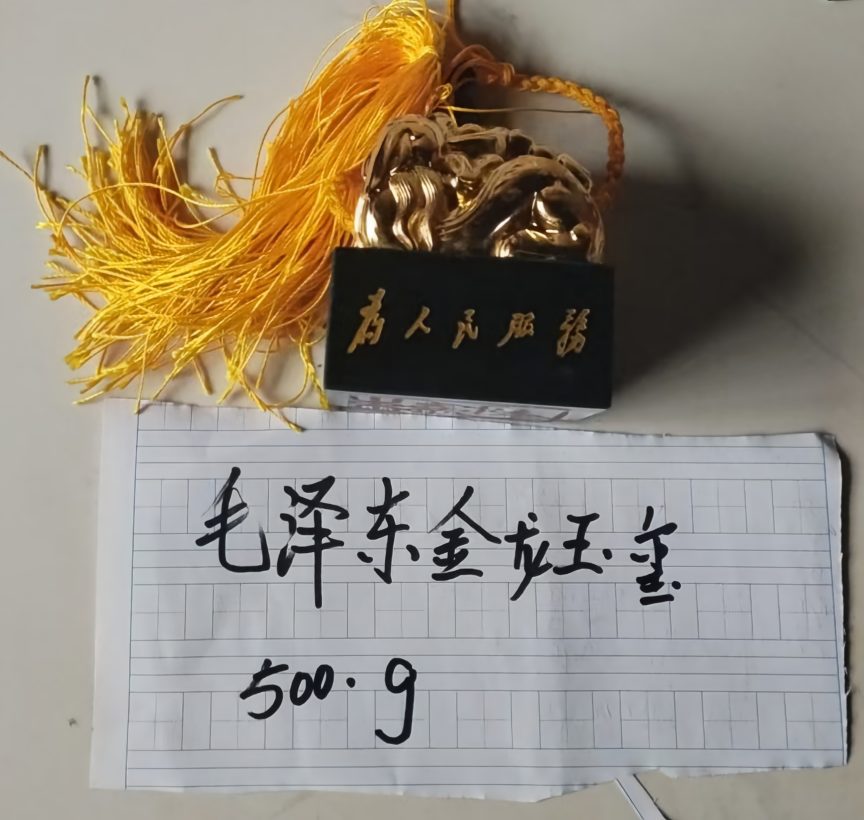 为人民服務
毛泽东金龙玉玺
500.g